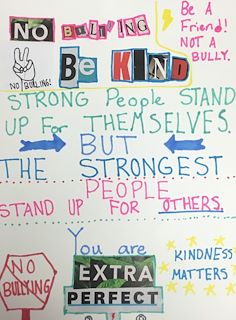 NO BULLYING
Be KIND
Be A
Friend!
NOT A
BULLY.
NO BULLING!
STRONG People STAND
UP For THEMSELVES.
BUT
THE STRONGEST
PEOPLE
STAND UP FOR OTHERS.
You are
EXTRA
PERFECT
NO
BULLYING
KINDNESS
MATTERS